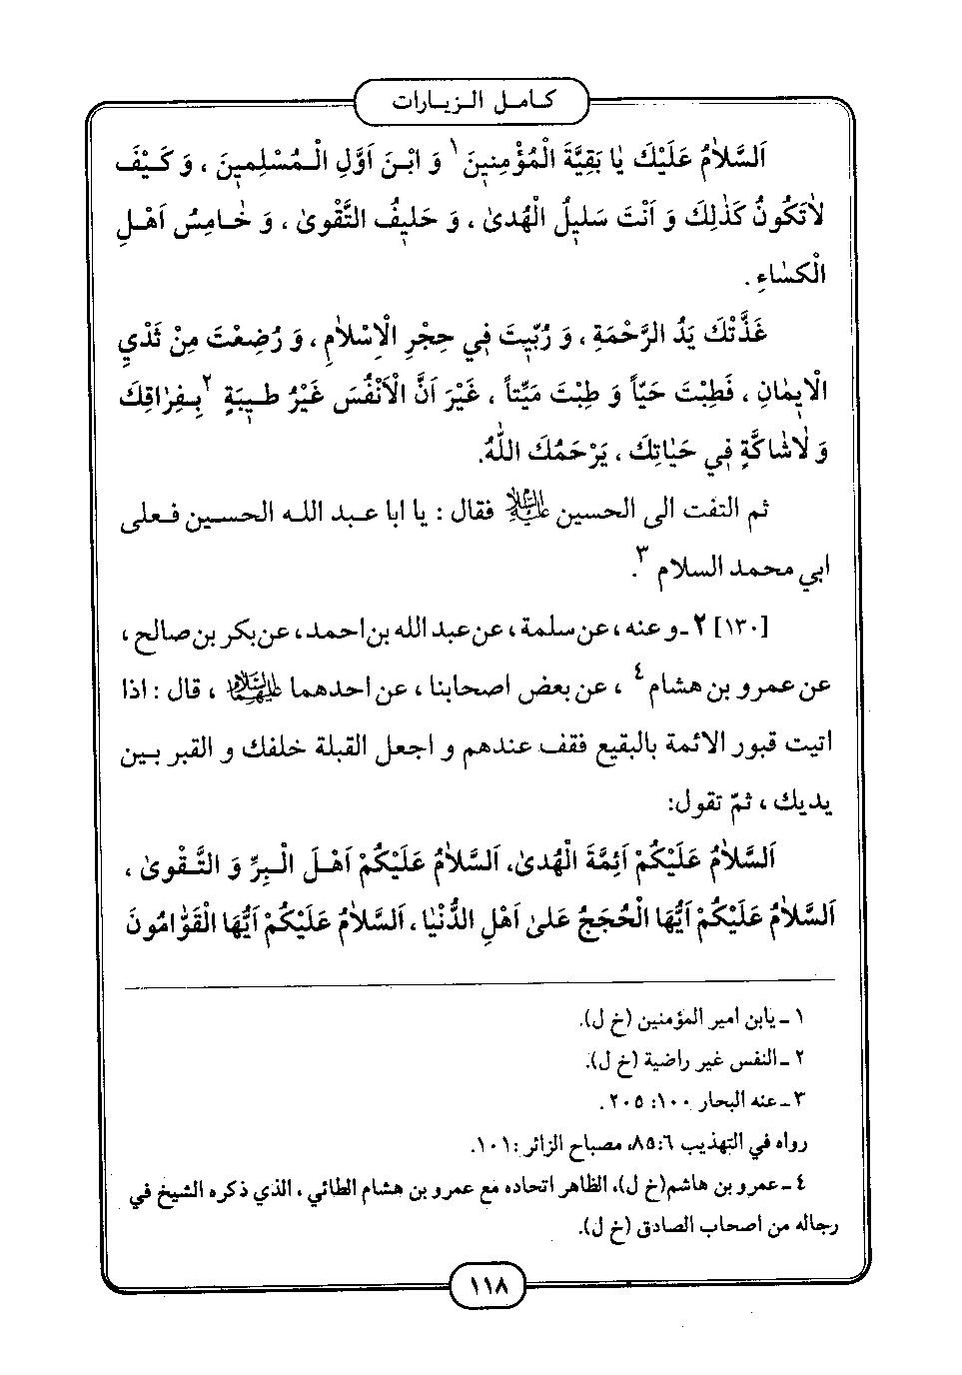 كـامـل الـزيـارات
اَلسَّلاٰمُ عَلَيْكَ يٰا بَقِيَّةَ الْمُؤْمِنِينَ ١ وَ ابْـنَ اَوَّلِ الْـمُسْلِمِينَ ، وَ كَـيْفَ
لاٰتَكُونُ كَذٰلِكَ وَ اَنْتَ سَلِيلُ الْهُدىٰ ، وَ حَلِيفُ التَّقْوىٰ ، وَ خٰـامِسُ اَهْـلِ
الْكسٰاءِ .
غَذَّتْكَ يَدُ الرَّحْمَةِ ، وَ رُبِّيتَ فِي حِجْرِ الْاِسْلاٰمِ ، وَ رُضِعْتَ مِنْ ثَدْيِ
الْاِيمٰانِ ، فَطِبْتَ حَيّاً وَ طِبْتَ مَيِّتاً ، غَيْرَ اَنَّ الْاَنْفُسَ غَيْرُ طَـيِبَةٍ ٢ بِـفِرٰاقِكَ
وَ لاٰ شٰاكَّةٍ فِي حَيٰاتِكَ ، يَرْحَمُكَ اللّٰهُ.
ثم التفت الى الحسين عليه السلام فقال : يا ابا عـبد اللـه الحسـين فـعلى
ابي محمد السلام ٣.
[١٣٠] ٢ ـ و عنه ، عن سلمة ، عن عبد الله بن احمد ، عن بكر بن صالح ،
عن عمرو بن هشام ٤ ، عن بعض اصحابنا ، عن احدهما عليهما السلام ، قال : اذا
اتيت قبور الائمة بالبقيع فقف عندهم و اجعل القبلة خلفك و القبر بـين
يديك ، ثمّ تقول:
اَلسَّلاٰمُ عَلَيْكُمْ اَئِمَّةَ الْهُدىٰ، اَلسَّلاٰمُ عَلَيْكُمْ اَهْـلَ الْـبِرِّ وَ التَّـقْوىٰ ،
اَلسَّلاٰمُ عَلَيْكُمْ اَيُّهَا الْحُجَجُ عَلىٰ اَهْلِ الدُّنْيٰا ، اَلسَّلاٰمُ عَلَيْكُمْ اَيُّهَا الْقَوّٰامُونَ
١ ـ يابن امير المؤمنين (خ ل).
٢ ـ النفس غير راضية (خ ل).
٣ ـ عنه البحار ١٠٠: ٢٠٥ .
رواه في التهذيب ٨٥:٦، مصباح الزائر :١٠١.
٤ ـ عمرو بن هاشم(خ ل)، الظاهر اتحاده مع عمرو بن هشام الطائي ، الذي ذكره الشيخ في
رجاله من اصحاب الصادق (خ ل).
١١٨